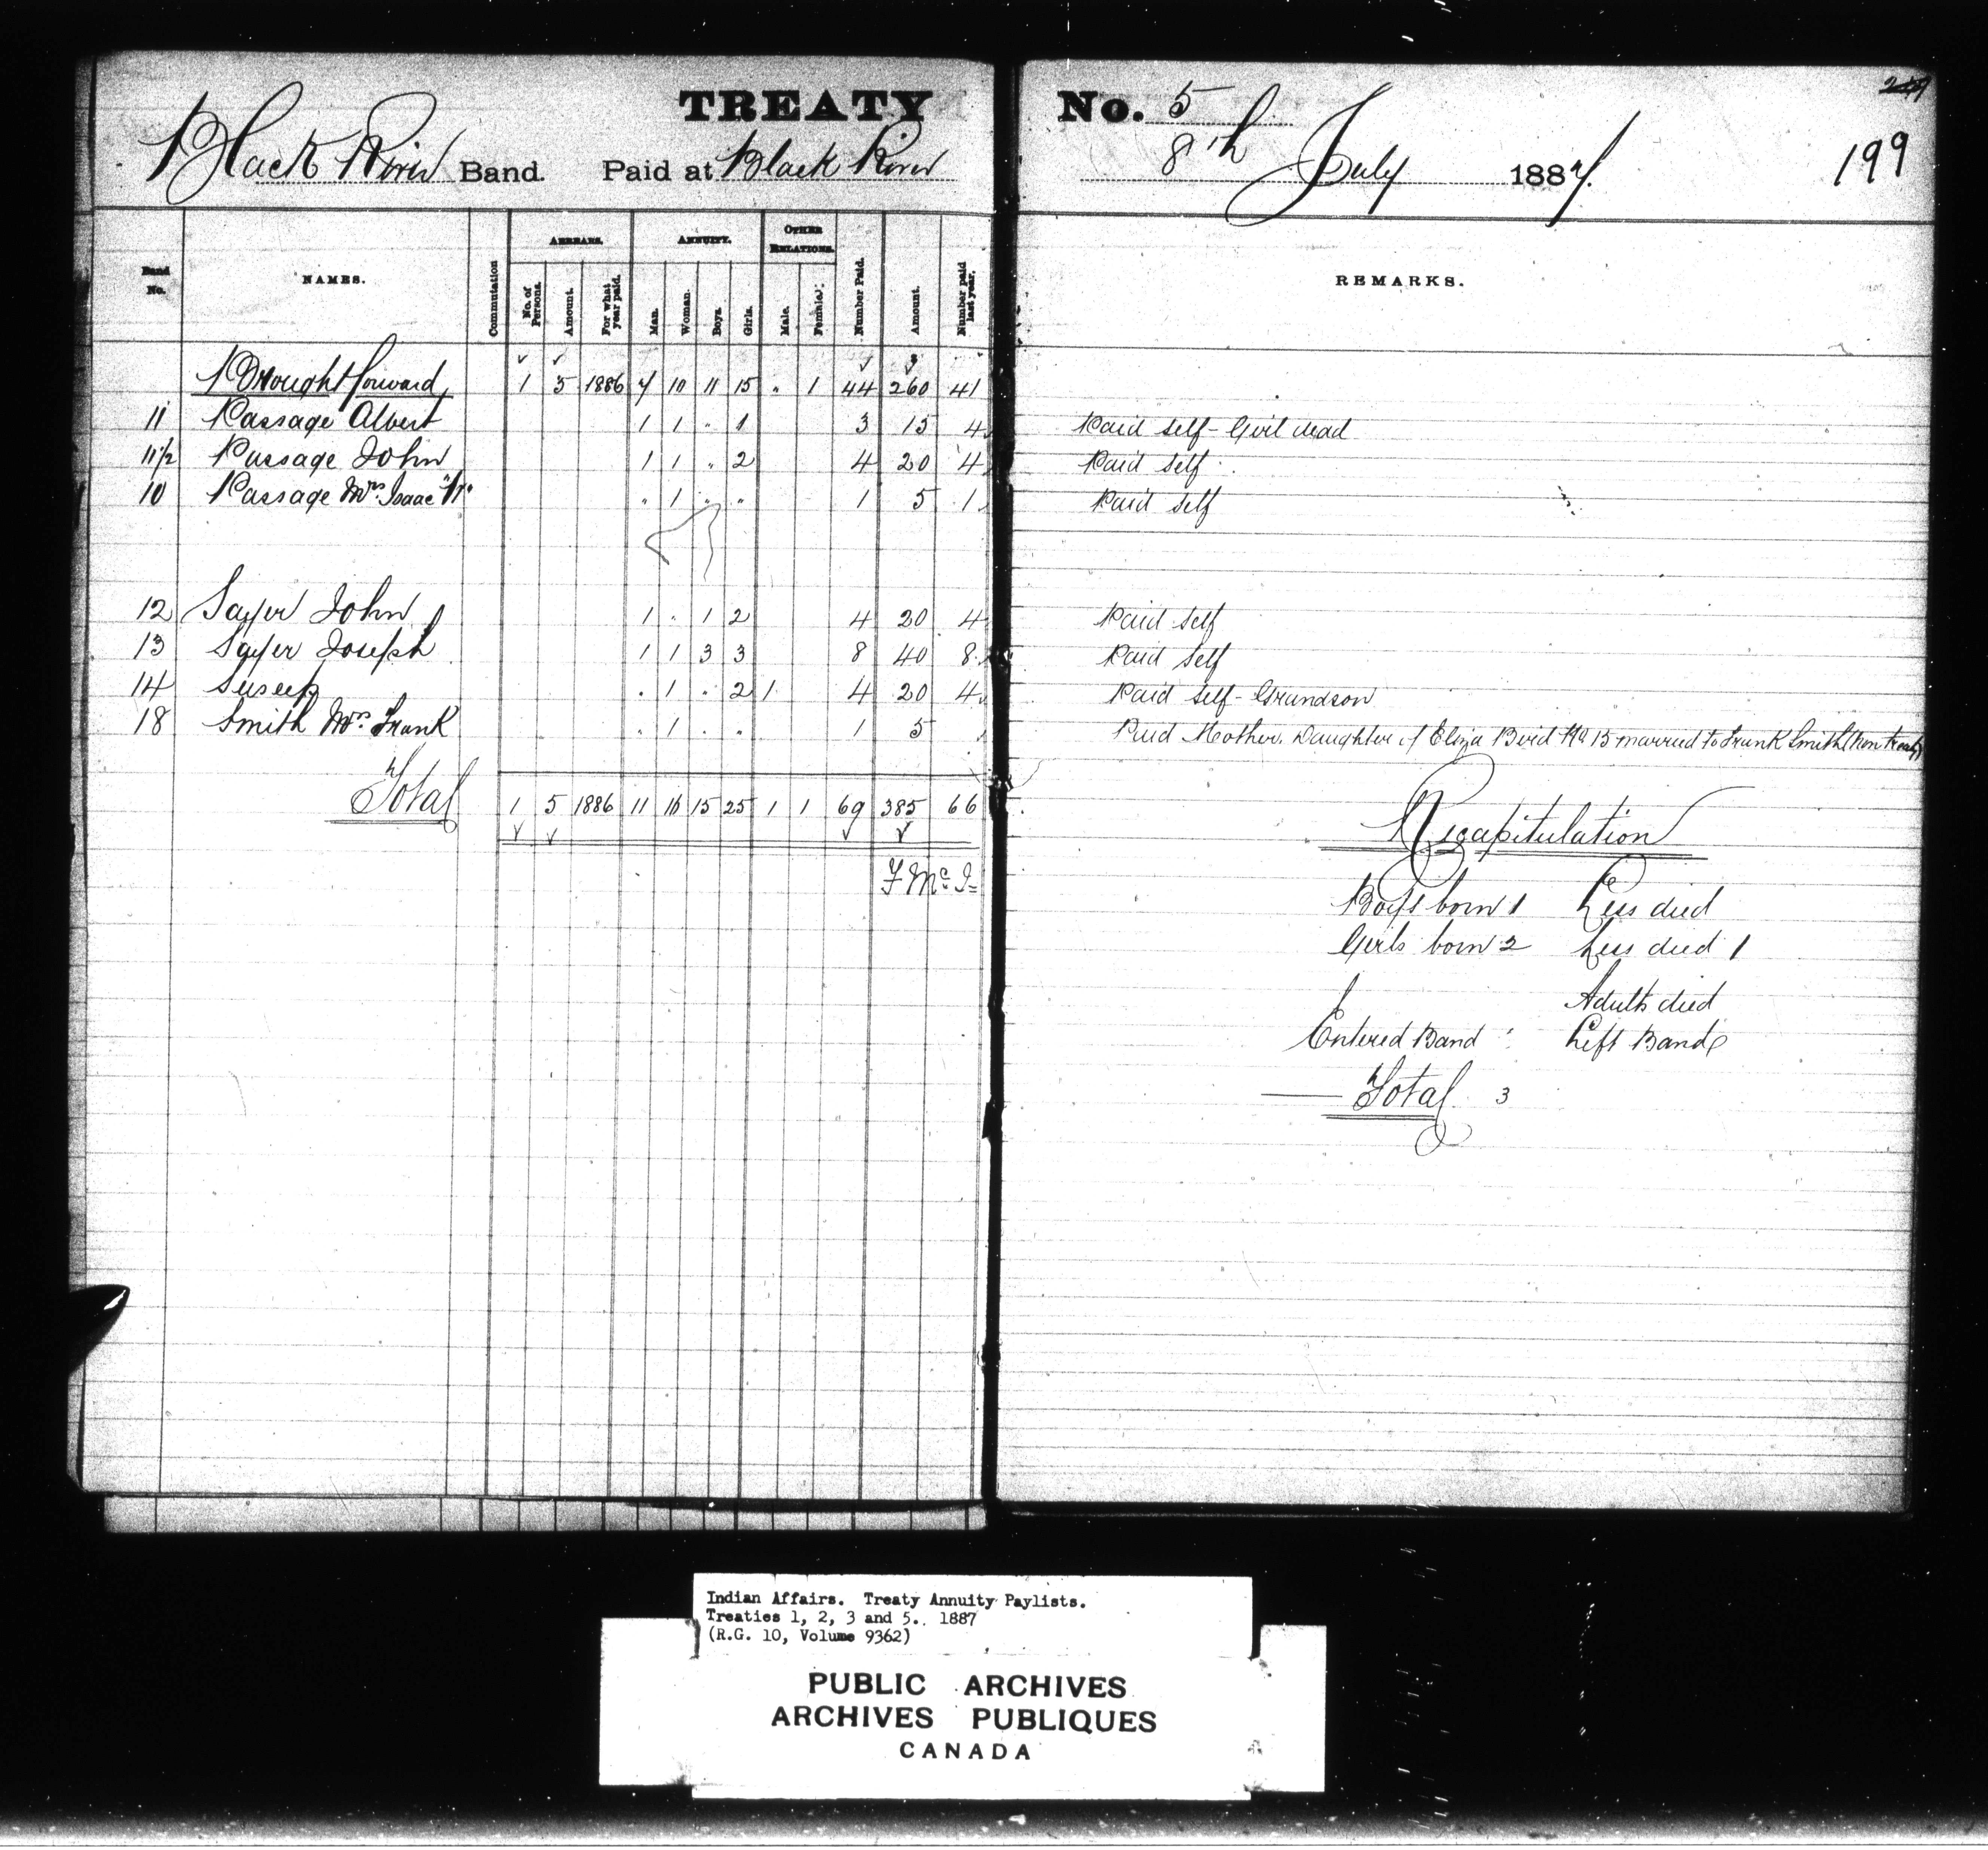 TREATY No. 5
199
Black River Band. Paid at Black River 8th July 1887.
Band No. NAMES. Commutation ARREARS. No. of Persons. Amount. For what year paid. ANNUITY. Man. Woman. Boys. Girls. OTHER RELATIONS. Male. Female. Number Paid. Amount. Number paid last year. REMARKS.
Brought forward 1 5 1886 7 10 11 15 " 1 44 260 41
11 Passage Albert 1 1 " 1 3 15 4 Paid self - Girl dead
11½ Passage John 1 1 " 2 4 20 4 Paid self
10 Passage Mrs. Isaac " 1 " " 1 5 1 Paid self
12 Sayer John 1 " 1 2 4 20 4 Paid self
13 Sayer Joseph 1 1 3 3 8 40 8 Paid self
14 Suseep " 1 " 2 1 4 20 4 Paid self - Grandson
18 Smith Mrs. Frank " 1 " " 1 5 Paid Mother. Daughter of Eliza Bird No 15 married to Frank Smith (Non treaty)
Total 1 5 1886 11 16 15 25 1 1 69 385 66
Recapitulation
Boys born 1 Less died
Girls born 2 Less died 1
Adults died
Entered Band Left Band
Total 3
Indian Affairs. Treaty Annuity Paylists.
Treaties 1, 2, 3 and 5. 1887
(R.G. 10, Volume 9362)
PUBLIC ARCHIVES
ARCHIVES PUBLIQUES
CANADA